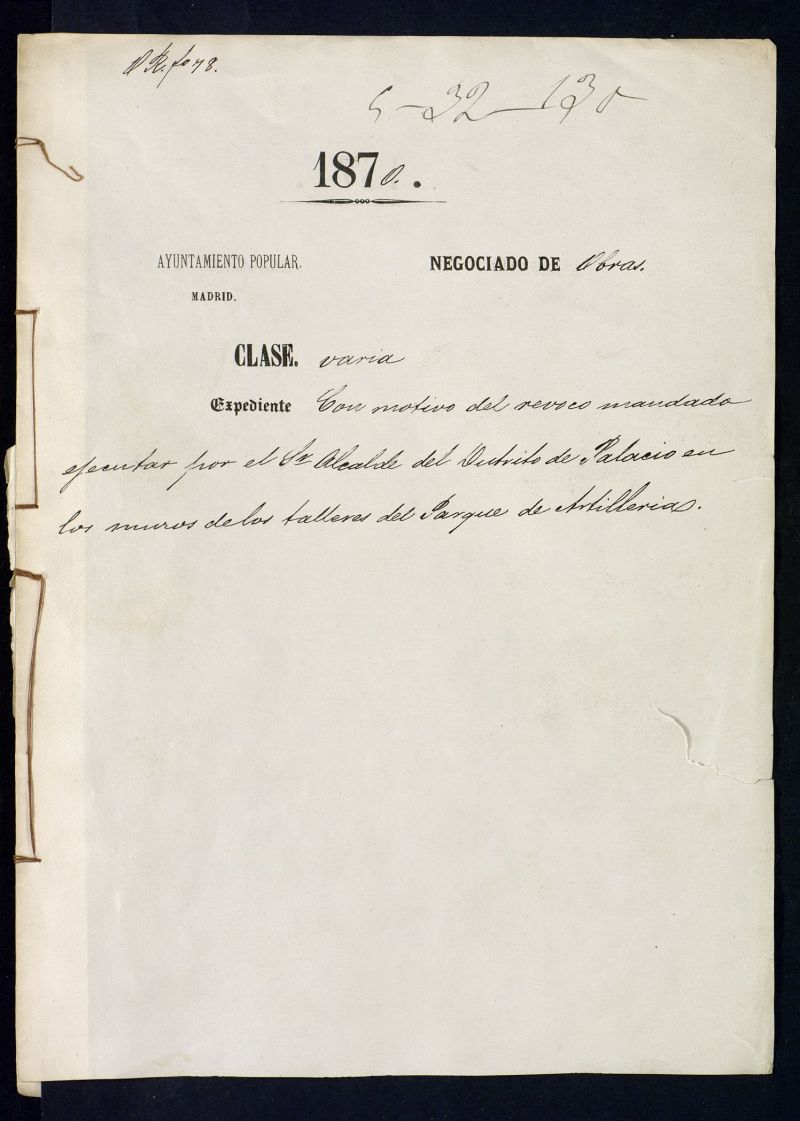 R. fo 78.
5-32-130
1870.
AYUNTAMIENTO POPULAR.
MADRID.
NEGOCIADO DE Obras.
CLASE. varia
Expediente Con motivo del revoco mandado
ejecutar por el Sr Alcalde del Distrito de Palacio en
los muros de los talleres del Parque de Artilleria.